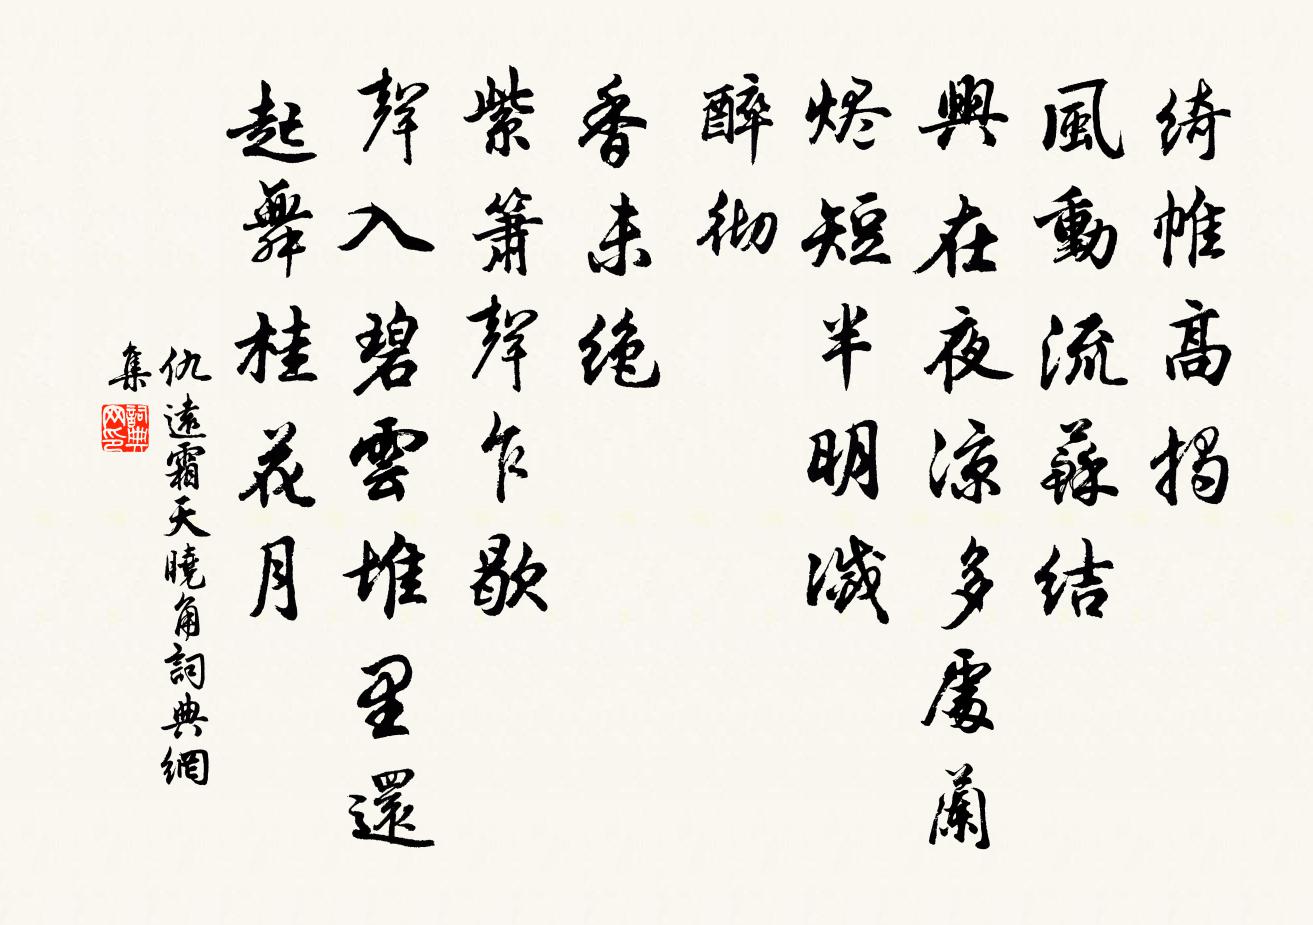 綺帷高揭
風動流蘇結
興在夜涼多處蘭
烬短半明滅
醉彻
香未绝
紫簫聲乍歇
聲入碧雲堆里還
起舞桂花月
仇遠霜天曉角詞典網
集
詞典网印